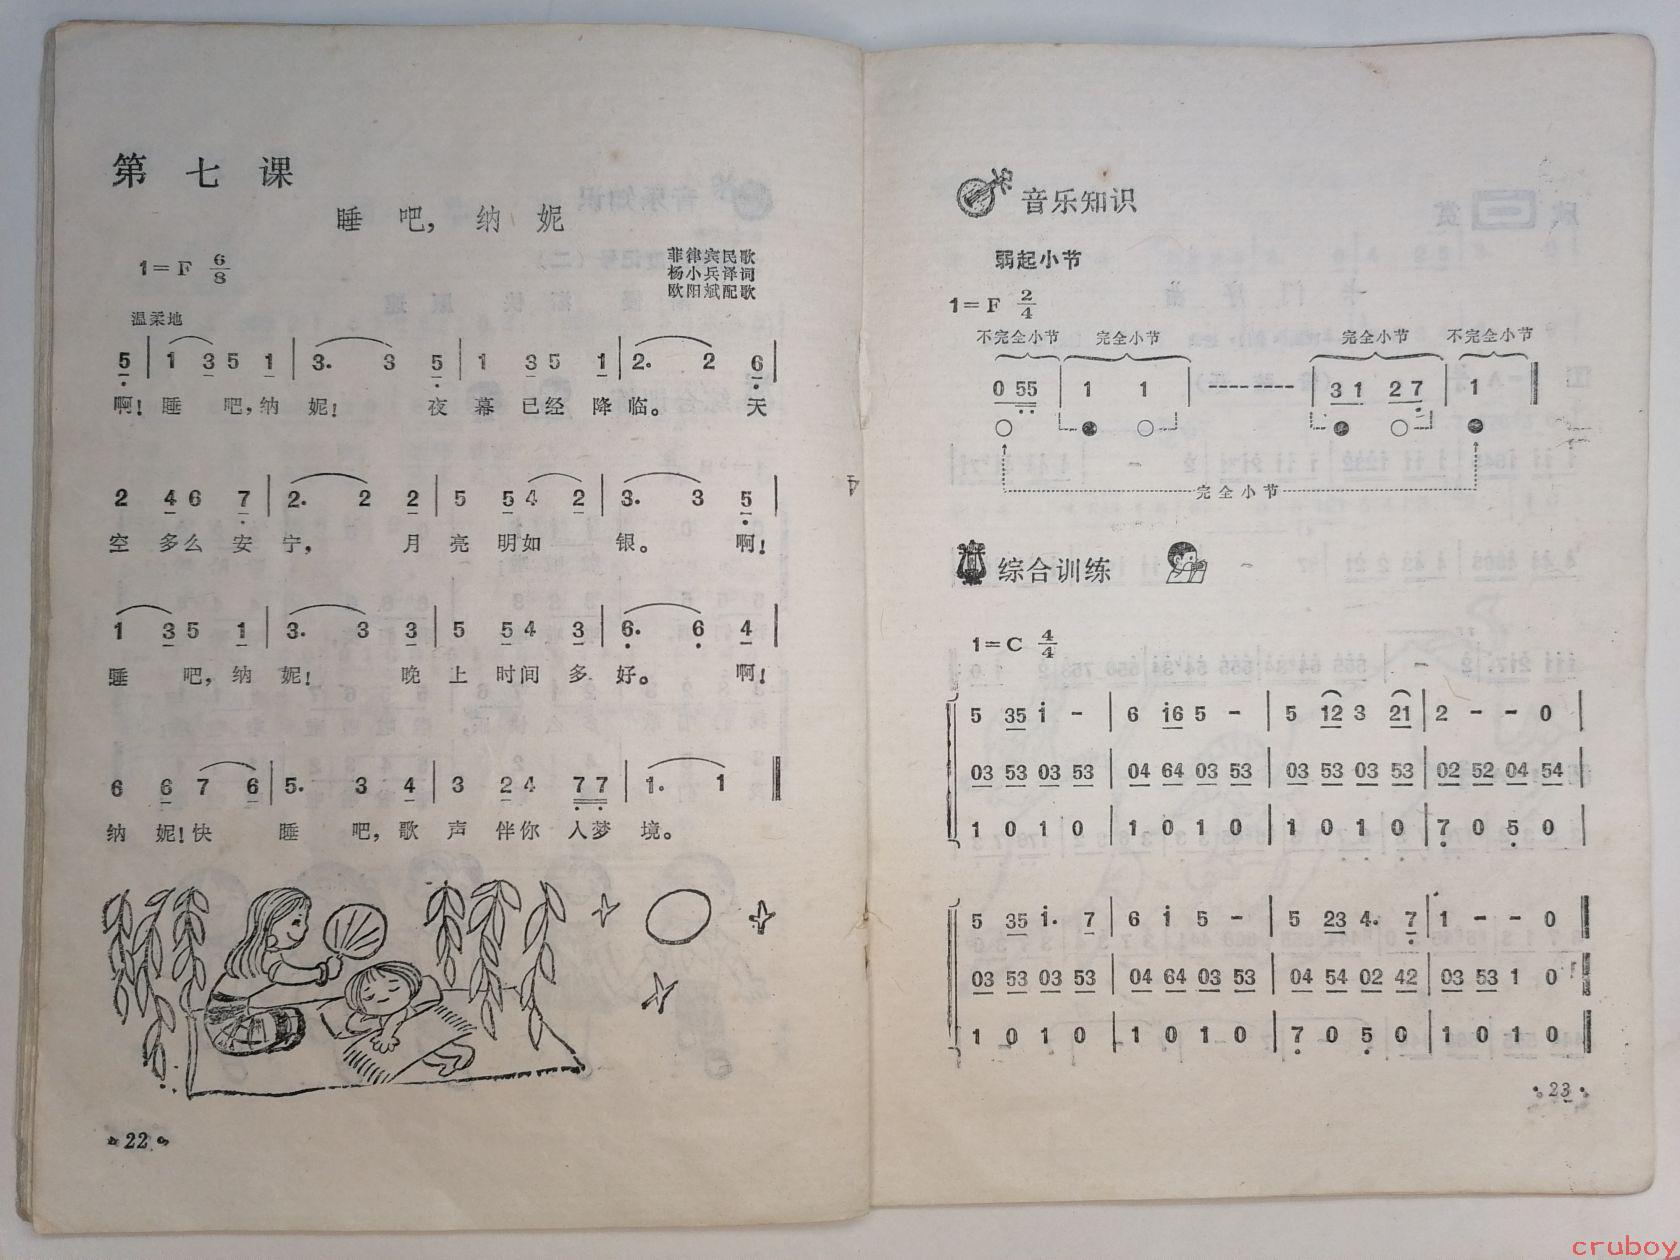 第七课
睡吧,纳妮
1=F 6/8
菲律宾民歌
杨小兵译词
欧阳斌配歌
温柔地
5 | 1 3 5 1 | 3. 3 5 | 1 3 5 1 | 2. 2 6 |
啊!睡 吧,纳 妮! 夜 幕 已经 降 临。 天
2 4 6 7 | 2. 2 2 | 5 5 4 2 | 3. 3 5 |
空 多么 安 宁, 月 亮 明如 银。 啊!
1 3 5 1 | 3. 3 3 | 5 5 4 3 | 6. 6 4 |
睡 吧,纳 妮! 晚 上 时间 多 好。 啊!
6 6 7 6 | 5. 3 4 | 3 2 4 7 7 | 1. 1 ‖
纳 妮!快 睡 吧,歌 声 伴你 入梦 境。
·22·
音乐知识
弱起小节
1=F 2/4
不完全小节 完全小节 完全小节 不完全小节
0 55 | 1 1 | -------- | 3 1 2 7 | 1 ‖
完全小节
综合训练
1=C 4/4
5 35 i - | 6 i6 5 - | 5 12 3 21 | 2 - - 0 |
03 53 03 53 | 04 64 03 53 | 03 53 03 53 | 02 52 04 54 |
1 0 1 0 | 1 0 1 0 | 1 0 1 0 | 7 0 5 0 |
5 35 i. 7 | 6 i 5 - | 5 23 4. 7 | 1 - - 0 ‖
03 53 03 53 | 04 64 03 53 | 04 54 02 42 | 03 53 1 0 ‖
1 0 1 0 | 1 0 1 0 | 7 0 5 0 | 1 0 1 0 ‖
·23·
cruboy